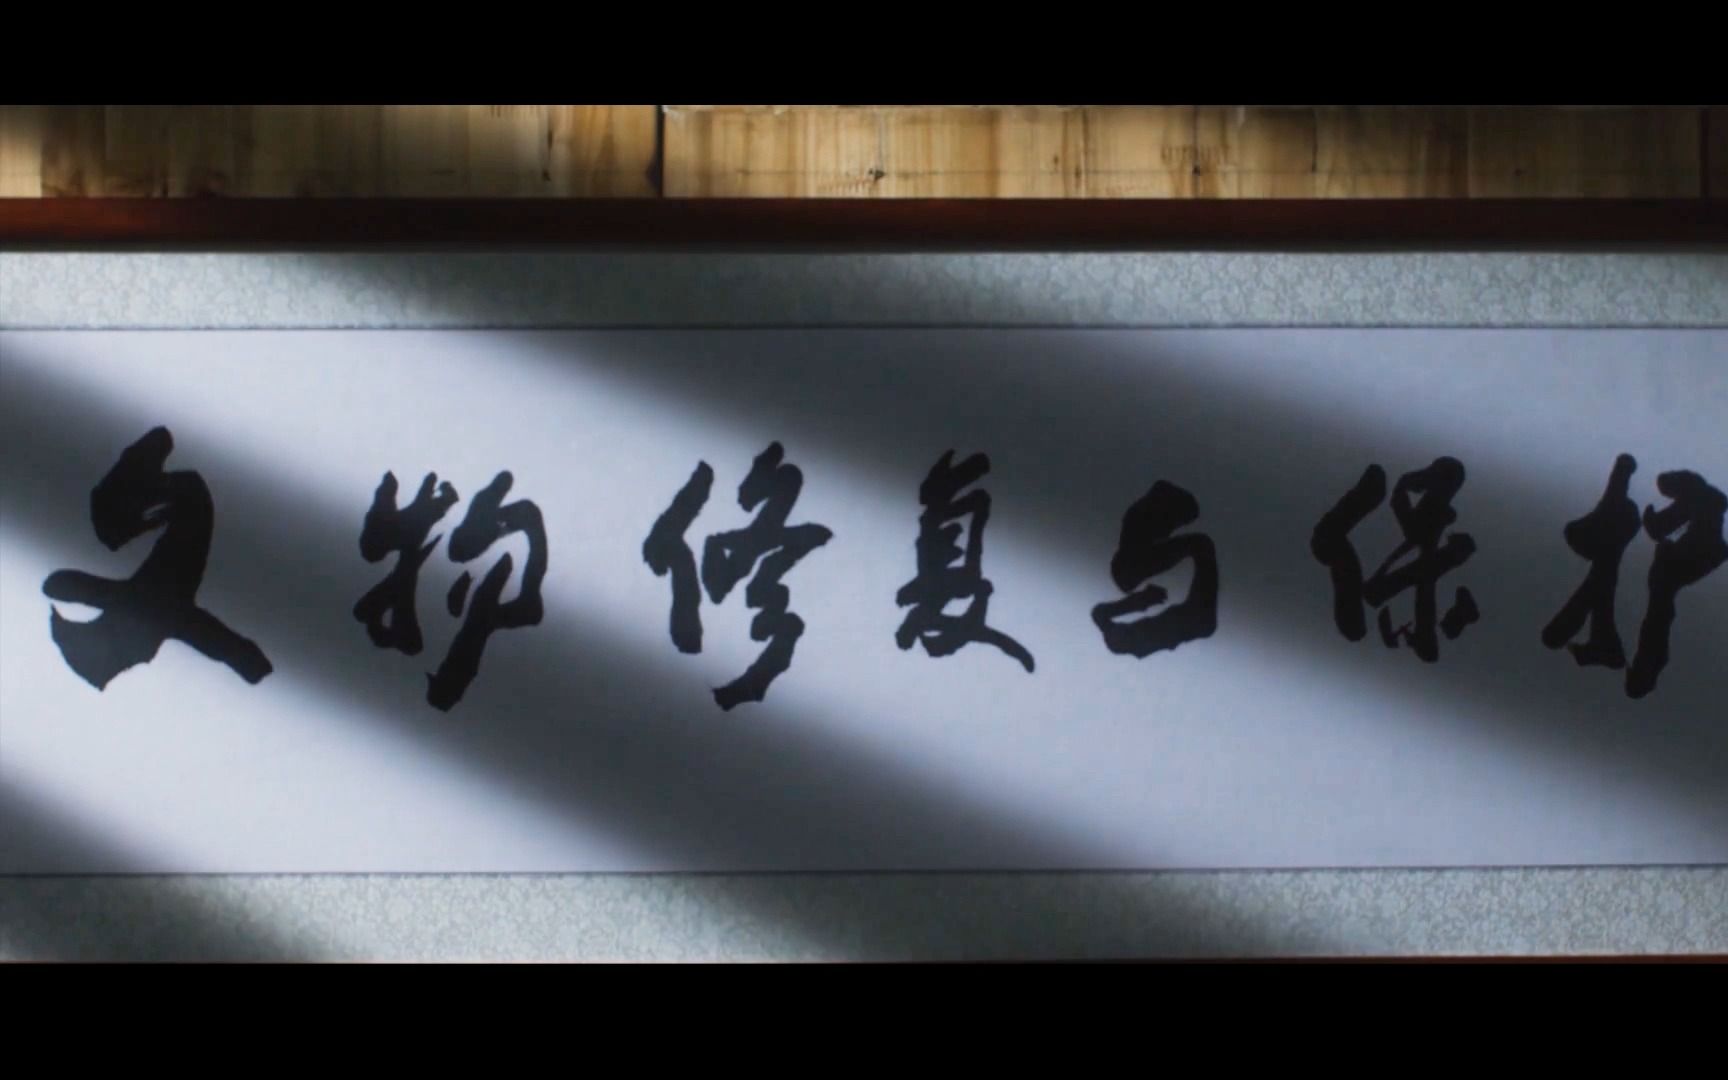 文物修复与保护